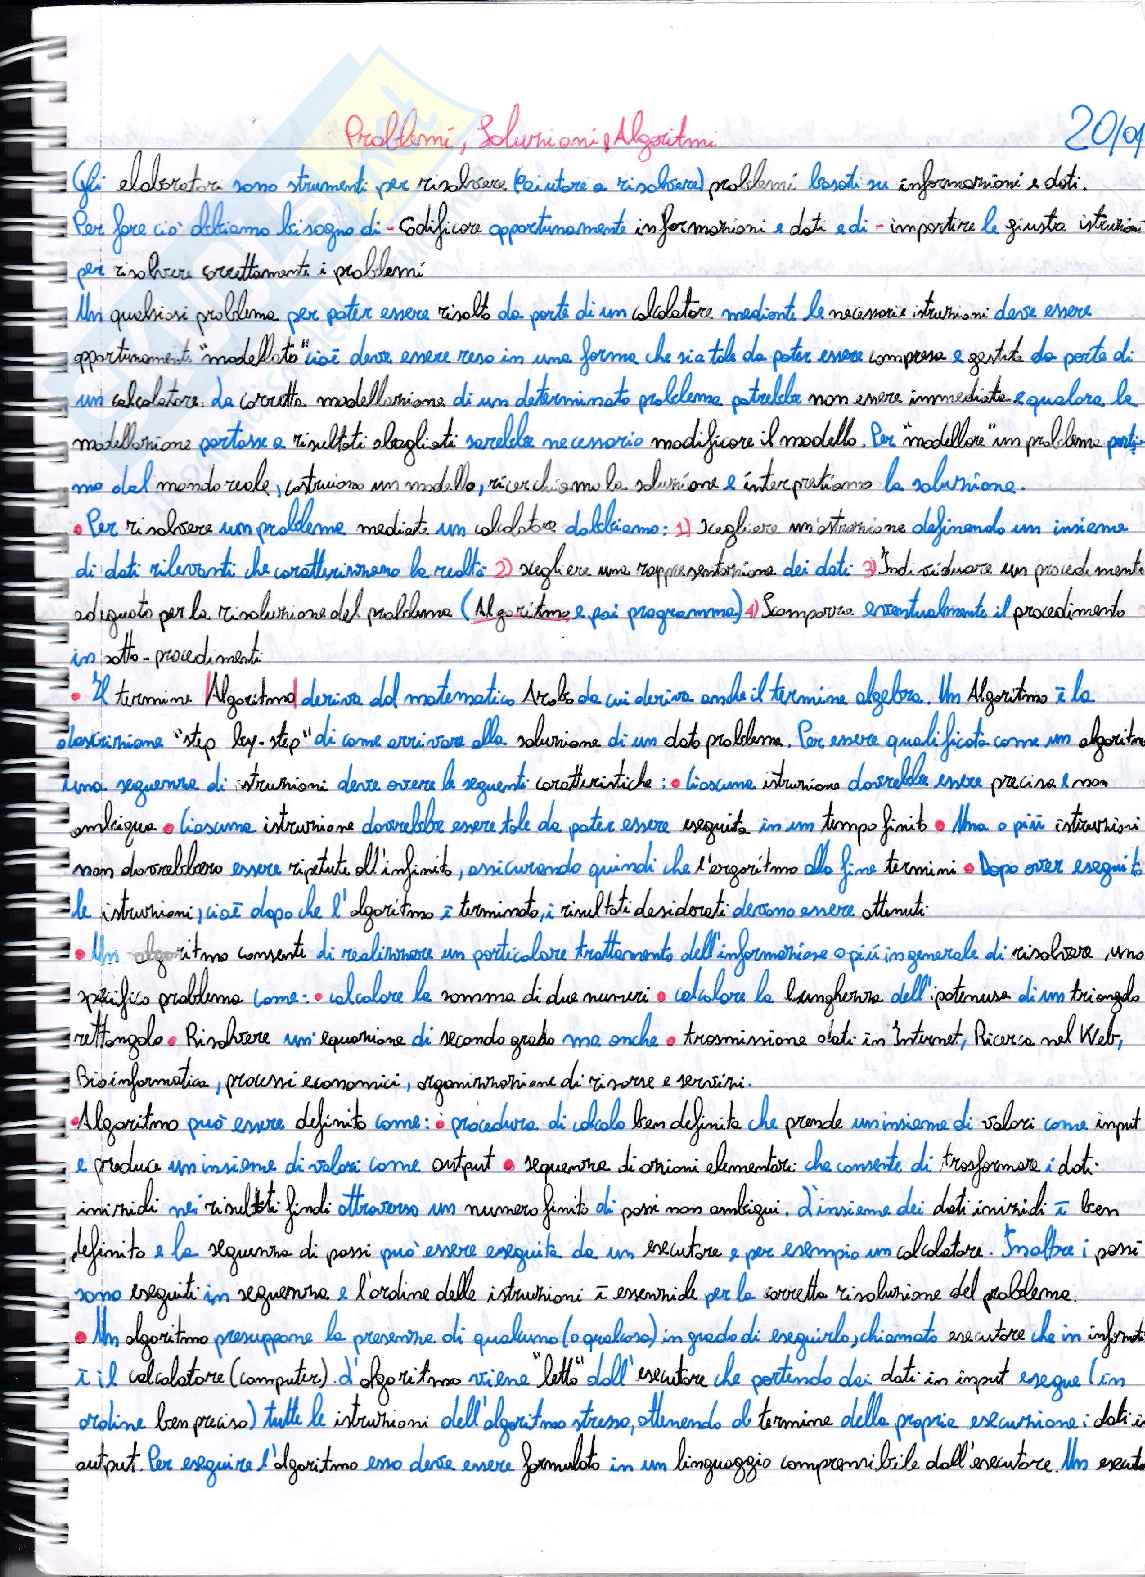 Problemi, Soluzioni, Algoritmi
20/01
Gli elaboratori sono strumenti per risolvere (aiutare a risolvere) problemi basati su informazioni e dati.
Per fare ciò abbiamo bisogno di - codificare opportunamente informazioni e dati e di - impartire le giuste istruzioni
per risolvere correttamente i problemi
Un qualsiasi problema per poter essere risolto da parte di un calcolatore mediante le necessarie istruzioni deve essere
opportunamente "modellato" cioè deve essere reso in una forma che sia tale da poter essere compresa e gestita da parte di
un calcolatore. La corretta modellazione di un determinato problema potrebbe non essere immediata e qualora la
modellazione portasse a risultati sbagliati sarebbe necessario modificare il modello. Per "modellare" un problema partia-
mo dal mondo reale, costruiamo un modello, ricerchiamo la soluzione e interpretiamo la soluzione.
• Per risolvere un problema mediate un calcolatore dobbiamo: 1) Scegliere un'astrazione definendo un insieme
di dati rilevanti che caratterizzano la realtà 2) scegliere una rappresentazione dei dati 3) Individuare un procedimento
adeguato per la risoluzione del problema (Algoritmo e poi programma) 4) Scomporre eventualmente il procedimento
in sotto-procedimenti
• Il termine Algoritmo deriva dal matematico Arabo da cui deriva anche il termine algebra. Un Algoritmo è la
descrizione "step by-step" di come arrivare alla soluzione di un dato problema. Per essere qualificata come un algoritmo
una sequenza di istruzioni deve avere le seguenti caratteristiche: • Ciascuna istruzione dovrebbe essere precisa e non
ambigua • Ciascuna istruzione dovrebbe essere tale da poter essere eseguita in un tempo finito • Una o più istruzioni
non dovrebbero essere ripetute all'infinito, assicurando quindi che l'argoritmo alla fine termini • Dopo aver eseguito
le istruzioni, cioè dopo che l'algoritmo è terminato, i risultati desiderati devono essere ottenuti
• Un algoritmo consenti di realizzare un particolare trattamento dell'informazione o più in generale di risolvere uno
specifico problema come: • calcolare la somma di due numeri • calcolare la lunghezza dell'ipotenusa di un triangolo
rettangolo • Risolvere un'equazione di secondo grado ma anche • trasmissione dati in Internet, Ricerca nel Web,
Bioinformatica, processi economici, organizzazione di risorse e servizi.
• Algoritmo può essere definito come: • procedura di calcolo ben definita che prende un insieme di valori come input
e produce un insieme di valori come output • sequenza di azioni elementari che consente di trasformare i dati
iniziali nei risultati finali attraverso un numero finito di passi non ambigui. L'insieme dei dati iniziali è ben
definito e la sequenza di passi può essere eseguita da un esecutore e per esempio un calcolatore. Inoltre i passi
sono eseguiti in sequenza e l'ordine delle istruzioni è essenziale per la corretta risoluzione del problema.
• Un algoritmo presuppone la presenza di qualcuno (o qualcosa) in grado di eseguirlo, chiamato esecutore che in informati
è il calcolatore (computer). L'algoritmo viene "letto" dall'esecutore che partendo dai dati in input esegue (in
ordine ben preciso) tutte le istruzioni dell'algoritmo stesso, ottenendo al termine della propria esecuzione i dati in
output. Per eseguire l'algoritmo esso deve essere formulato in un linguaggio comprensibile dall'esecutore. Un esecuto